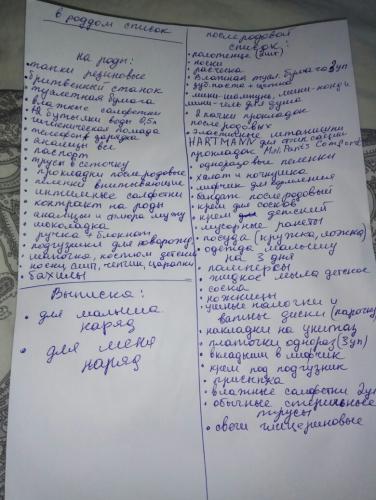 в роддом список
на роды:
• тапки резиновые
• бритвенный станок
• туалетная бумага
• влажные салфетки
• 1-2 бутылки воды 0,5л
• гигиеническая помада
• телефон, зарядка
• анализы все
• паспорт
• трусы в сеточку
• прокладки послеродовые
• пеленки впитывающие
• интимные салфетки
• контракт на роды
• анализы и флюра мужу
• шоколадка
• ручка + блокнот
• подгузники для новорожд
• шапочка, костюм детский
носки, чепчик, царапки
• бахилы
Выписка:
• для малыша
наряд
• для меня
наряд
послеродовая
список:
• полотенце (2шт)
• носки
• расческа
• Влажная туал. бумага 3уп
• зуб. паста + щетка
• мини-шампунь, мини-конд и
мини-гель для душа
• 2 пачки прокладок
послеродовых
• эластичные штанишки
HARTMANN для фиксации
прокладок MoliPants Comfort
• одноразовые пеленки
• халат и ночнушка
• лифчик для кормления
• бандаж послеродовый
• крем для сосков
• крем детский
• мусорные пакеты
• посуда (кружка, ложка)
• одежда малышу
на 3 дня
• памперсы
• жидкое мыло детское
• соска
• ножницы
• ушные палочки и
ватные диски (парочку)
• накладки на унитаз
• платочки однораз (3уп)
• вкладыши в лифчик
• крем под подгузник
• присыпка
• влажные салфетки 2уп
• обычные стерильные
трусы
• свечи глицериновые